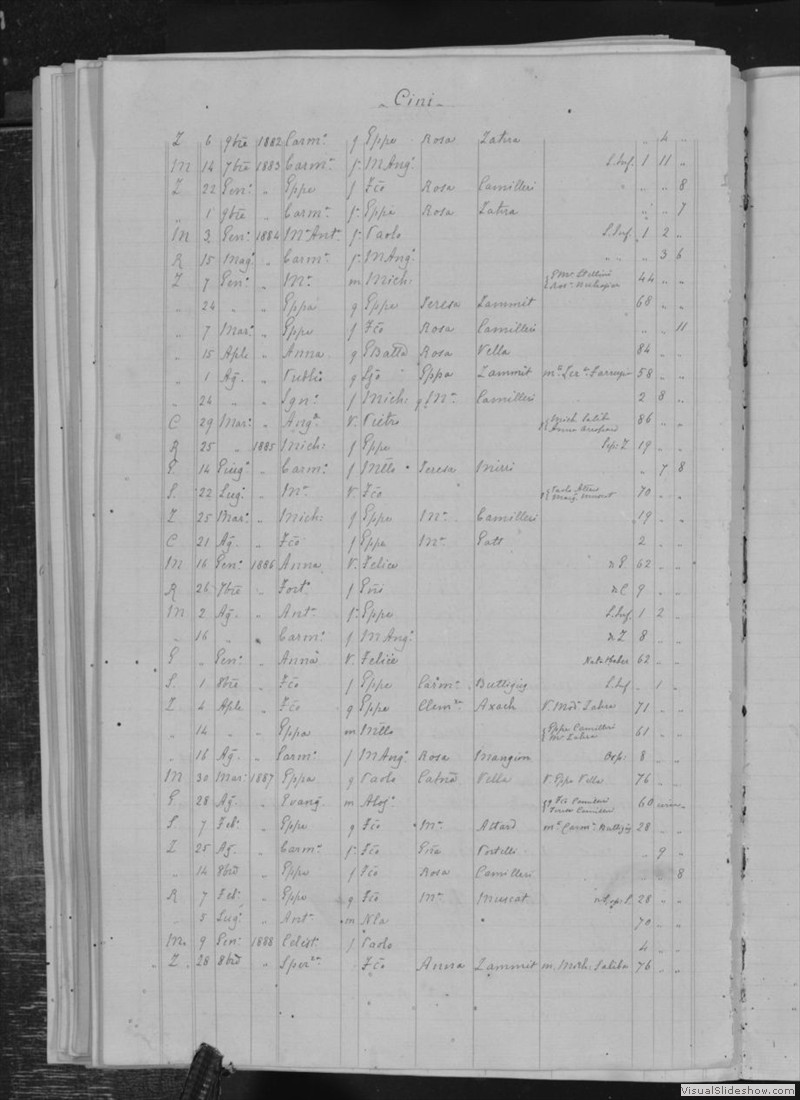 Cini
Z 6 9bre 1882 Carm.a f Eppe Rosa Zahra " 4 "
M 14 7bre 1883 Carm.a f. M Ang.o S. Inf. 1 11 "
Z 22 Gen.o " Eppa f Fco Rosa Camilleri " " 8
" 1 9bre " Carm.a f. Eppe Rosa Zahra " " 7
M 3 Gen.o 1884 Ma Ant.a f. Paolo S. Inf 1 2 "
R 15 Mag.o " Carm.a f. M Ang.o " " 3 6
Z 7 Gen.o " M.a m Mich. 44 " "
" 24 " " Eppa g Eppe Teresa Zammit 68 " "
" 7 Mar. " Eppe f Fco Rosa Camilleri " " 11
" 15 Aple " Anna g GBatta Rosa Vella 84 " "
" 1 Ag. " Publio g Eppa Zammit 58 " "
" 24 " " Ign.o f Mich. M.a Camilleri 2 8 "
C 29 Mar. " Ang.a V. Pietro 86 " "
R 25 " 1885 Mich. f Eppe Sep: Z 19 " "
G 14 Giug.o " Carm.o f Mtto Teresa Mirri " 7 8
S. 22 Lug.o " M.a V. Fco 70 " "
Z 25 Mar. " Mich. f Eppe M.a Camilleri 19 " "
C 21 Ag. " Fco f Eppe M.a Gatt 2 " "
M 16 Gen.o 1886 Anna V. Felice n G. 62 " "
R 26 7bre " Fort.o f n C 9 " "
M 2 Ag. " Ant.a f. Eppe S. Inf. 1 2 "
" 16 " " Carm.o f M Ang.o n Z 8 " "
G " Gen.o " Anna V. Felice 62 " "
S. 1 8bre " Fco f Eppe Carm.a Buttigieg S. Inf " 1 "
Z 4 Aple " Fco g Eppe Clem.za Axach V. Zahra 71 " "
" 14 " " Eppa m Mtto Eppe Camilleri M.a Zahra 61 " "
" 16 Ag. " Carm.o f M Ang.o Rosa Mangion 8 " "
M 30 Mar. 1887 Eppa g Paolo Catna Vella V. Eppe Vella 76 " "
G. 28 Ag. " Evang. m Aloj.o 60
S. 7 Feb. " Eppe g Fco M.a Attard m.o Carm.a Buttigieg 28 " "
Z 25 Ag. " Carm.a f. Fco Portelli " 9 "
" 14 8bre " Eppe f Fco Rosa Camilleri 8
R 7 Feb. " Eppe g Fco M.a Muscat 28 " "
" 5 Lug.o " Ant.a m Nla 70 " "
M. 9 Gen.o 1888 Celest. f Paolo 4 " "
Z. 28 8bre " Sper.za Fco Anna Zammit m. Mich. Saliba 76 " "
VisualSlideshow.com